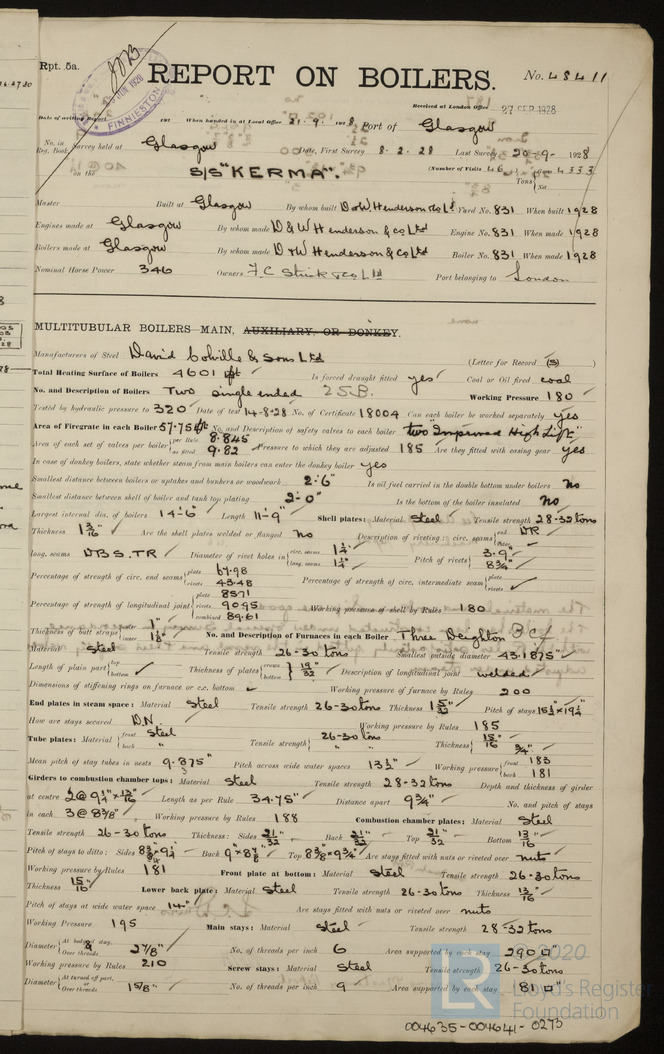 Rpt. 5a.
FINNIESTON
REPORT ON BOILERS.
No. 48411
Received at London Office 27 SEP 1928
Date of writing Report 192 When handed in at Local Office 21.9.1928 Port of Glasgow
No. in Reg. Book. Survey held at Glasgow Date, First Survey 8.2.28 Last Survey 20-9-1928
on the S/S "KERMA". (Number of Visits 46) Gross 4333 Tons Net
Master Built at Glasgow By whom built D&W Henderson & Co Ld Yard No. 831 When built 1928
Engines made at Glasgow By whom made D & W Henderson & Co Ltd Engine No. 831 When made 1928
Boilers made at Glasgow By whom made D & W Henderson & Co Ltd Boiler No. 831 When made 1928
Nominal Horse Power 346 Owners F.C. Strick & Co Ltd Port belonging to London
MULTITUBULAR BOILERS—MAIN, AUXILIARY, OR DONKEY.
Manufacturers of Steel David Colville & Sons Ltd (Letter for Record (S) )
Total Heating Surface of Boilers 4601 Is forced draught fitted yes Coal or Oil fired coal
No. and Description of Boilers Two single ended 2SB. Working Pressure 180
Tested by hydraulic pressure to 320 Date of test 14-8-28 No. of Certificate 18004 Can each boiler be worked separately yes
Area of Firegrate in each Boiler 57.75 No. and Description of safety valves to each boiler two "Improved High Lift"
Area of each set of valves per boiler per Rule 8.845 as fitted 9.82 Pressure to which they are adjusted 185 Are they fitted with easing gear yes
In case of donkey boilers, state whether steam from main boilers can enter the donkey boiler yes
Smallest distance between boilers or uptakes and bunkers or woodwork 2'-6" Is oil fuel carried in the double bottom under boilers No
Smallest distance between shell of boiler and tank top plating 2'-0" Is the bottom of the boiler insulated No
Largest internal dia. of boilers 14'-6" Length 11'-9" Shell plates: Material Steel Tensile strength 28-32 tons
Thickness 1 3/16" Are the shell plates welded or flanged No Description of riveting: circ. seams end DR inter.
long. seams DBS.TR Diameter of rivet holes in circ. seams 1 1/4" long. seams 1 1/4" Pitch of rivets 3.9" 8 3/4"
Percentage of strength of circ. end seams plate 67.98 rivets 43.48 Percentage of strength of circ. intermediate seam plate rivets
Percentage of strength of longitudinal joint plate 85.71 rivets 90.95 combined 89.61 Working pressure of shell by Rules 180
Thickness of butt straps outer 1" inner 1 1/8" No. and Description of Furnaces in each Boiler Three Deighton
Material Steel Tensile strength 26-30 tons Smallest outside diameter 43.1875"
Length of plain part top bottom Thickness of plates crown bottom 19/32" Description of longitudinal joint welded
Dimensions of stiffening rings on furnace or c.c. bottom Working pressure of furnace by Rules 200
End plates in steam space: Material Steel Tensile strength 26-30 tons Thickness 1 5/32" Pitch of stays 15 1/2" x 19 1/4"
How are stays secured DN. Working pressure by Rules 185
Tube plates: Material front Steel back " Tensile strength 26-30 tons " " Thickness 15/16" 3/4"
Mean pitch of stay tubes in nests 9.375" Pitch across wide water spaces 13 1/2" Working pressure front 183 back 181
Girders to combustion chamber tops: Material Steel Tensile strength 28-32 tons Depth and thickness of girder
at centre 2@ 9 1/4" x 13/16" Length as per Rule 34.75" Distance apart 9 3/4" No. and pitch of stays
in each 3@ 8 3/8" Working pressure by Rules 188 Combustion chamber plates: Material Steel
Tensile strength 26-30 tons Thickness: Sides 21/32" Back 21/32" Top 21/32" Bottom 13/16"
Pitch of stays to ditto: Sides 8 3/8" x 9 1/4" Back 9" x 8 7/8" Top 8 3/8" x 9 3/4" Are stays fitted with nuts or riveted over nuts
Working pressure by Rules 181 Front plate at bottom: Material Steel Tensile strength 26-30 tons
Thickness 15/16" Lower back plate: Material Steel Tensile strength 26-30 tons Thickness 13/16"
Pitch of stays at wide water space 14" Are stays fitted with nuts or riveted over nuts
Working Pressure 195 Main stays: Material Steel Tensile strength 28-32 tons
Diameter At body of stay, or Over threads 2 7/8" No. of threads per inch 6 Area supported by each stay 290 □"
Working pressure by Rules 210 Screw stays: Material Steel Tensile strength 26-30 tons
Diameter At turned off part, or Over threads 1 5/8" No. of threads per inch 9 Area supported by each stay 81 □"
© 2020
LR
Lloyd's Register
Foundation
004635-004641-0273